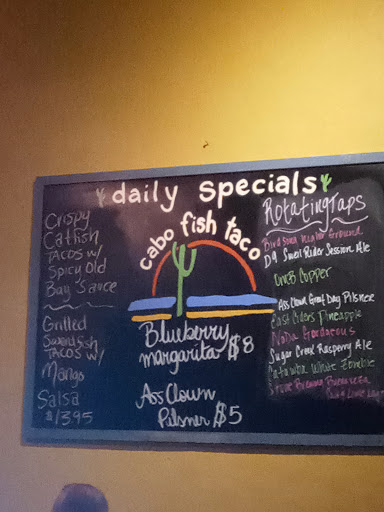 daily specials
cabo fish taco
Crispy
Catfish
Tacos w/
Spicy Old
Bay Sauce
Grilled
Swordfish
Tacos w/
Mango
Salsa
$13.95
Blueberry
margarita $8
Ass Clown
Pilsner $5
Rotating Taps
Birdsong Higher Ground
D9 Sweet Rider Session Ale
OMB Copper
Ass Clown Great Day Pilsner
East Ciders Pineapple
NoDa Gordgeous
Sugar Creek Raspberry Ale
Catawba White Zombie
Stone Brewing